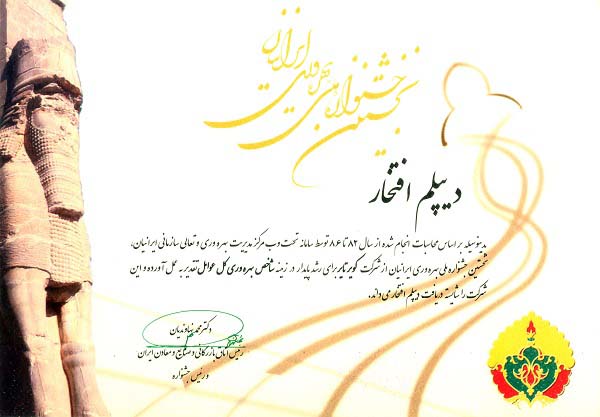 نخستین جشنواره ملی بهره وری ایرانیان
دیپلم افتخار
بدینوسیله بر اساس محاسبات انجام شده از سال ۸۲ تا ۸۶ توسط سامانه تحت وب مرکز مدیریت بهره وری و تعالی سازمانی ایرانیان،
نخستین جشنواره ملی بهره وری ایرانیان از شرکت کویر تایر برای رشد پایدار در زمینه شاخص بهره وری کل عوامل تقدیر به عمل آورده و این
شرکت را شایسته دریافت دیپلم افتخار می داند.
دکتر محمد نهاوندیان
رئیس اتاق بازرگانی و صنایع و معادن ایران
و رئیس جشنواره